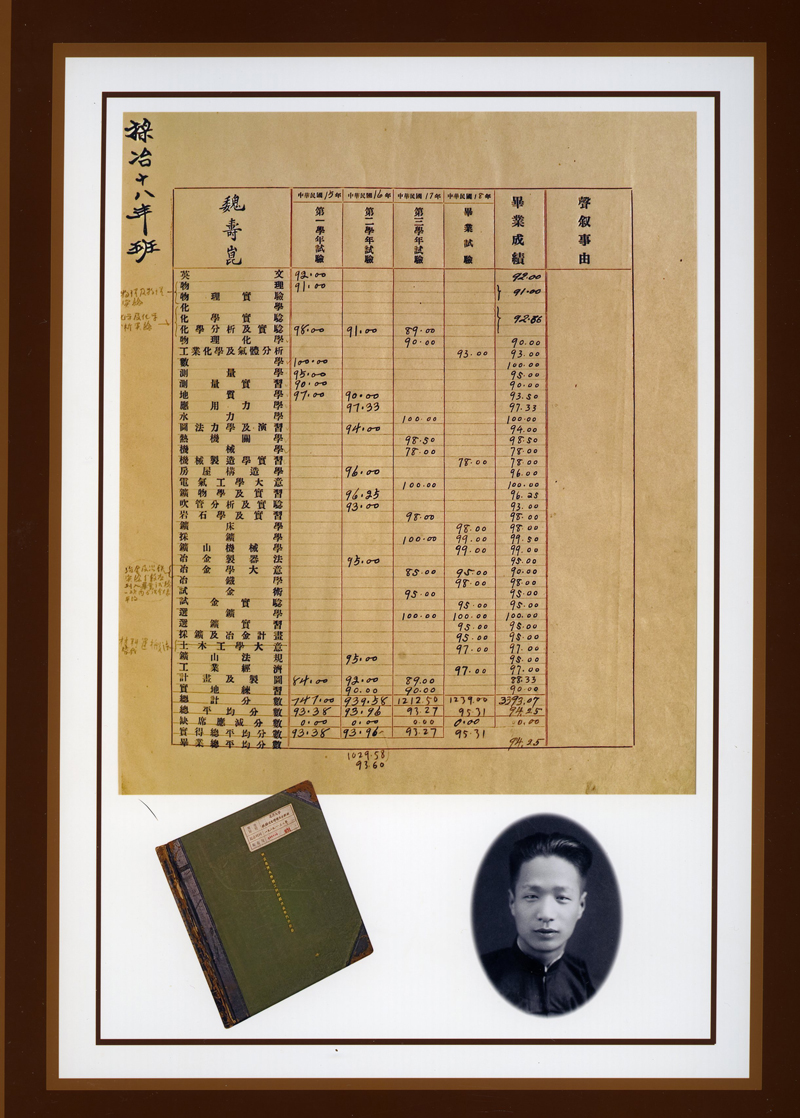 採冶十八年班
魏壽崑
中華民國15年 第一學年試驗
中華民國16年 第二學年試驗
中華民國17年 第三學年試驗
中華民國18年 畢業試驗
畢業成績
聲叙事由
英文 92.00 92.00
物理 91.00
物理實驗 91.00
化學
化學實驗 92.86
化學分析及實驗 98.00 91.00 89.00
物理化學 90.00 90.00
工業化學及氣體分析 93.00 93.00
數學 100.00 100.00
測量學 95.00 95.00
測量實習 90.00 90.00
地質學 97.00 90.00 93.50
應用力學 97.33 97.33
水力學 100.00 100.00
圖法力學及演習 94.00 94.00
熱機關學 98.50 98.50
機械學 78.00 78.00
機械製造學實習 78.00 78.00
房屋構造學 96.00 96.00
電氣工學大意 100.00 100.00
鑛物學及實習 96.25 96.25
吹管分析及實驗 93.00 93.00
岩石學及實習 98.00 98.00
鑛床學 98.00 98.00
採鑛學 100.00 99.00 99.50
鑛山機械學 99.00 99.00
冶金製器法 95.00 95.00
冶金學大意 85.00 95.00 90.00
冶鐵學 98.00 98.00
試金術 95.00 95.00
試金實驗 95.00 95.00
選鑛學 100.00 100.00 100.00
選鑛實習 95.00 95.00
採鑛及冶金計畫 95.00 95.00
土木工學大意 97.00 97.00
鑛山法規 95.00 95.00
工業經濟 97.00 97.00
計畫及製圖 84.00 92.00 89.00 88.33
實地練習 90.00 90.00 90.00
總計分數 747.00 939.58 1212.50 1239.00 3393.07
總平均分數 93.38 93.96 93.27 95.31 94.25
缺席應減分數 0.00 0.00 0.00 0.00 0.00
實得總平均分數 93.38 93.96 93.27 95.31
畢業總平均分數 94.25
1029.58
93.60